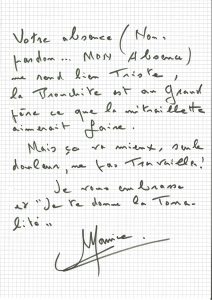 Votre absence (Non.
pardon... MON Absence)
me rend bien Triste,
la Bronchite est au Grand
père ce que la mitraillette
aimerait faire.
Mais ça va mieux, seule
douleur, ne pas Travailler!
Je vous embrasse
et "Je te donne la Tona-
lité"
Maurice.